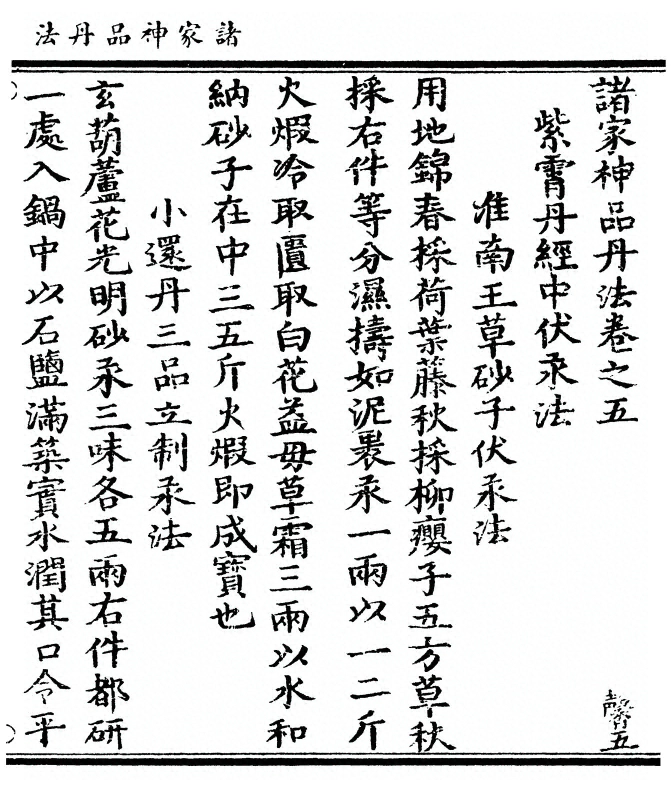 諸家神品丹法
諸家神品丹法卷之五
馨五
紫霄丹經中伏汞法
淮南王草砂子伏汞法
用地錦春採荷葉藤秋採柳癭子五方草秋
採右件等分濕擣如泥裹汞一兩以一二斤
火煆冷取匱取白花益母草霜三兩以水和
納砂子在中三五斤火煆即成寶也
小還丹三品立制汞法
玄葫蘆花光明砂汞三味各五兩右件都研
一處入鍋中以石鹽滿築實水潤其口令平